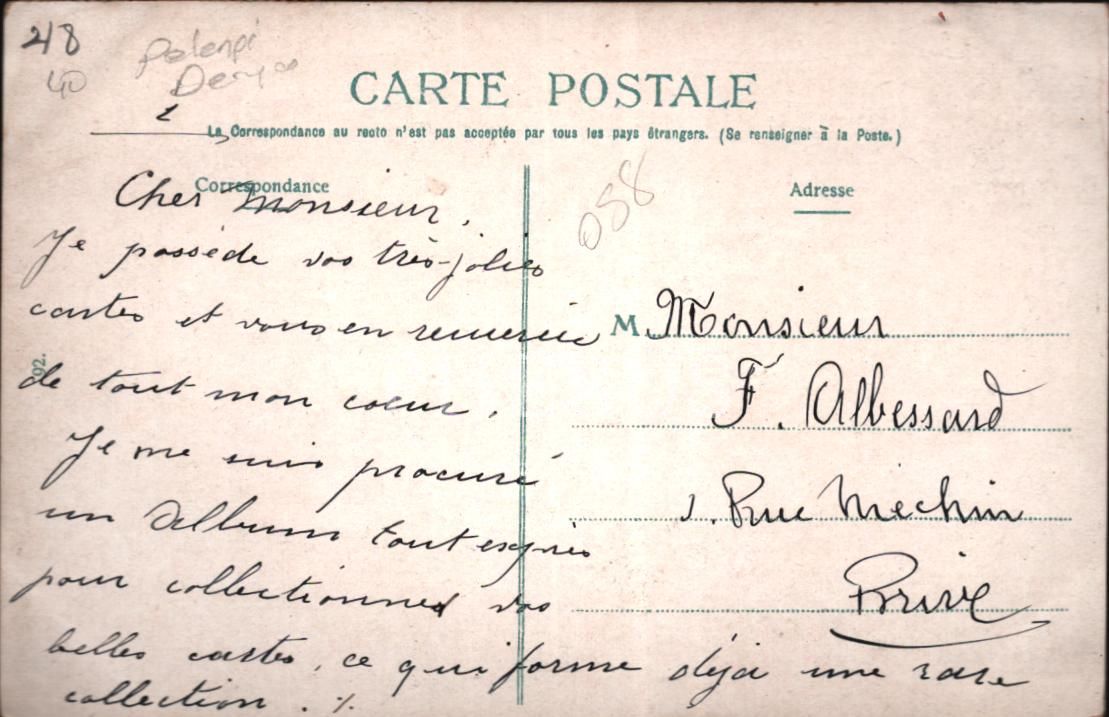 218
40
CARTE POSTALE
La Correspondance au recto n'est pas acceptée par tous les pays étrangers. (Se renseigner à la Poste.)
Correspondance
Cher Monsieur.
Je possède vos très-jolies
cartes et vous en remercie
de tout mon coeur.
Je me suis procuré
un Album tout exprès
pour collectionner vos
belles cartes, ce qui forme déjà une rare
collection. ./.
92.
058
Adresse
M. Monsieur
F. Albessard
1. Rue Mechin
Brive